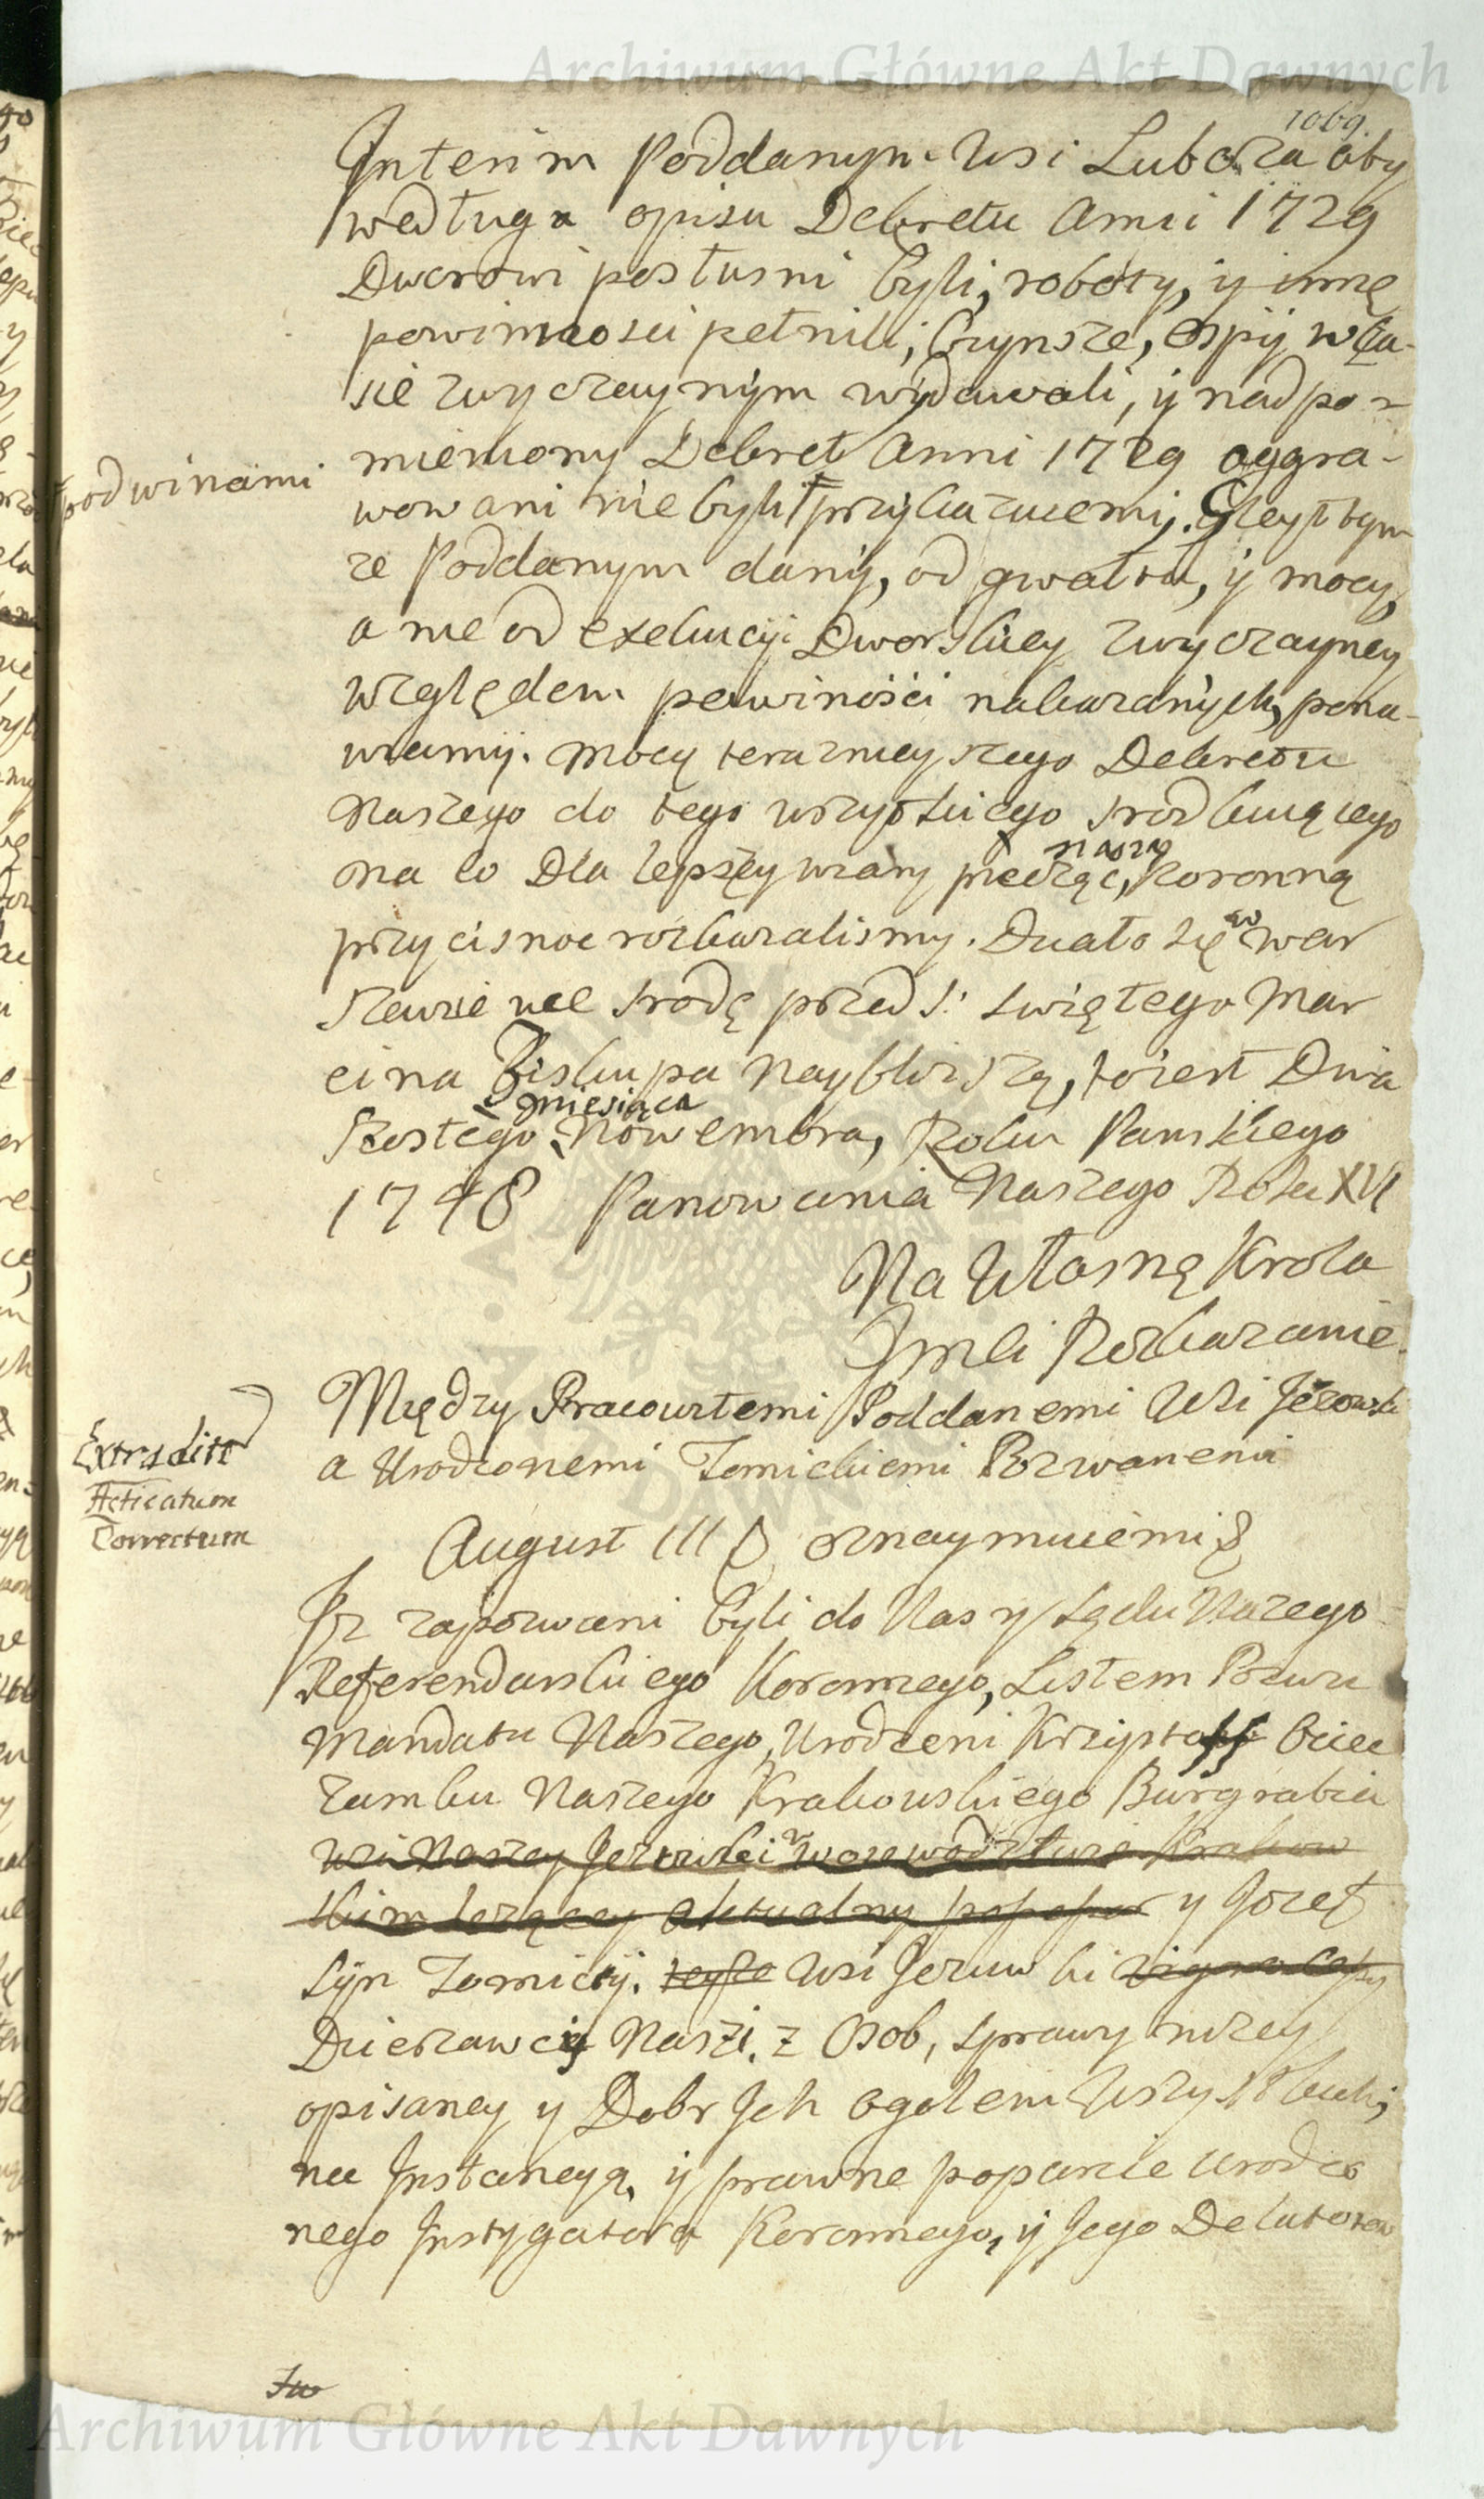 Archiwum Główne Akt Dawnych
1069.
Interim Poddanym Wsi Luborza aby
według opisu Dekretu Anni 1729
Dworowi posłusni byli, roboty, y inne
powinnosci pełnili, Czynsze, Ospy w cza-
sie zwyczaynym wydawali, y nad po-
mieniony Dekret Anni 1729 aggra-
wowani nie byli przykazuiemy. Gleyt tym
pod winami
ze Poddanym dany, od gwałtu, y mocy,
a nie od exekucyi Dworskiey zwyczayney
względem powinności nakazanych, pona-
wiamy. Mocą teraznieyszego Dekretu
Naszego do tego wszystkiego srodkuiącego
na co Dla lepszey wiary pieczęc, naszą Koronną
przycisnoc roskazalismy. Działo się w War
szawie we srodę przed S: Swiętego Mar
cina Biskupa Naybliższą, to iest Dnia
Szostego miesiąca Nowembra, Roku Panskiego
1748 Panowania Naszego Roku XVI
Na Własną Krola
Jmci Roskazanie.
Między Pracowitemi Poddanemi Wsi Jezowki
a Urodzonemi Tomickiemi Pozwanemi
Extradit
Acticatum
Correctum
August III D oznaymuiemi &
Jz zapozwani byli do Nas y Sądu Naszego
Referendarskiego Koronnego, Listem Pozwu
Mandatu Naszego, Urodzeni Krzysztoff Ociec
Zamku Naszego Krakowskiego Burgrabia
wsi Naszey Jezowki w woiewodztwie Krakow
skim lezącey aktualny possessor y Jozef
Syn Tomiccy. teyze wsi Jezuwki
Dzierzawcy Nasi. z Osob, sprawy nizey
opisaney y Dobr Jch ogolem Wszystkich,
na Jnstancyą, y prawne poparcie Urodzo
nego Jnstygatora Koronnego, y Jego Delatorow
Archiwum Główne Akt Dawnych